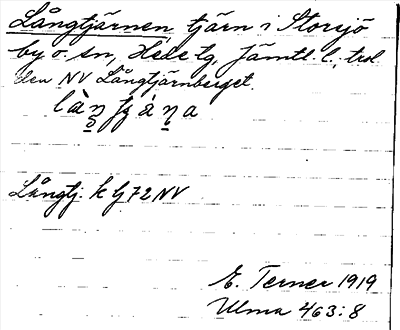 Långtjärnen tjärn i Storsjö
by o. sn, Hede tg, Jämtl. l.;
den NV Långtjärnberget.
Långtj. k bj 72 NV
E. Terner 1919
Ulma 463:8